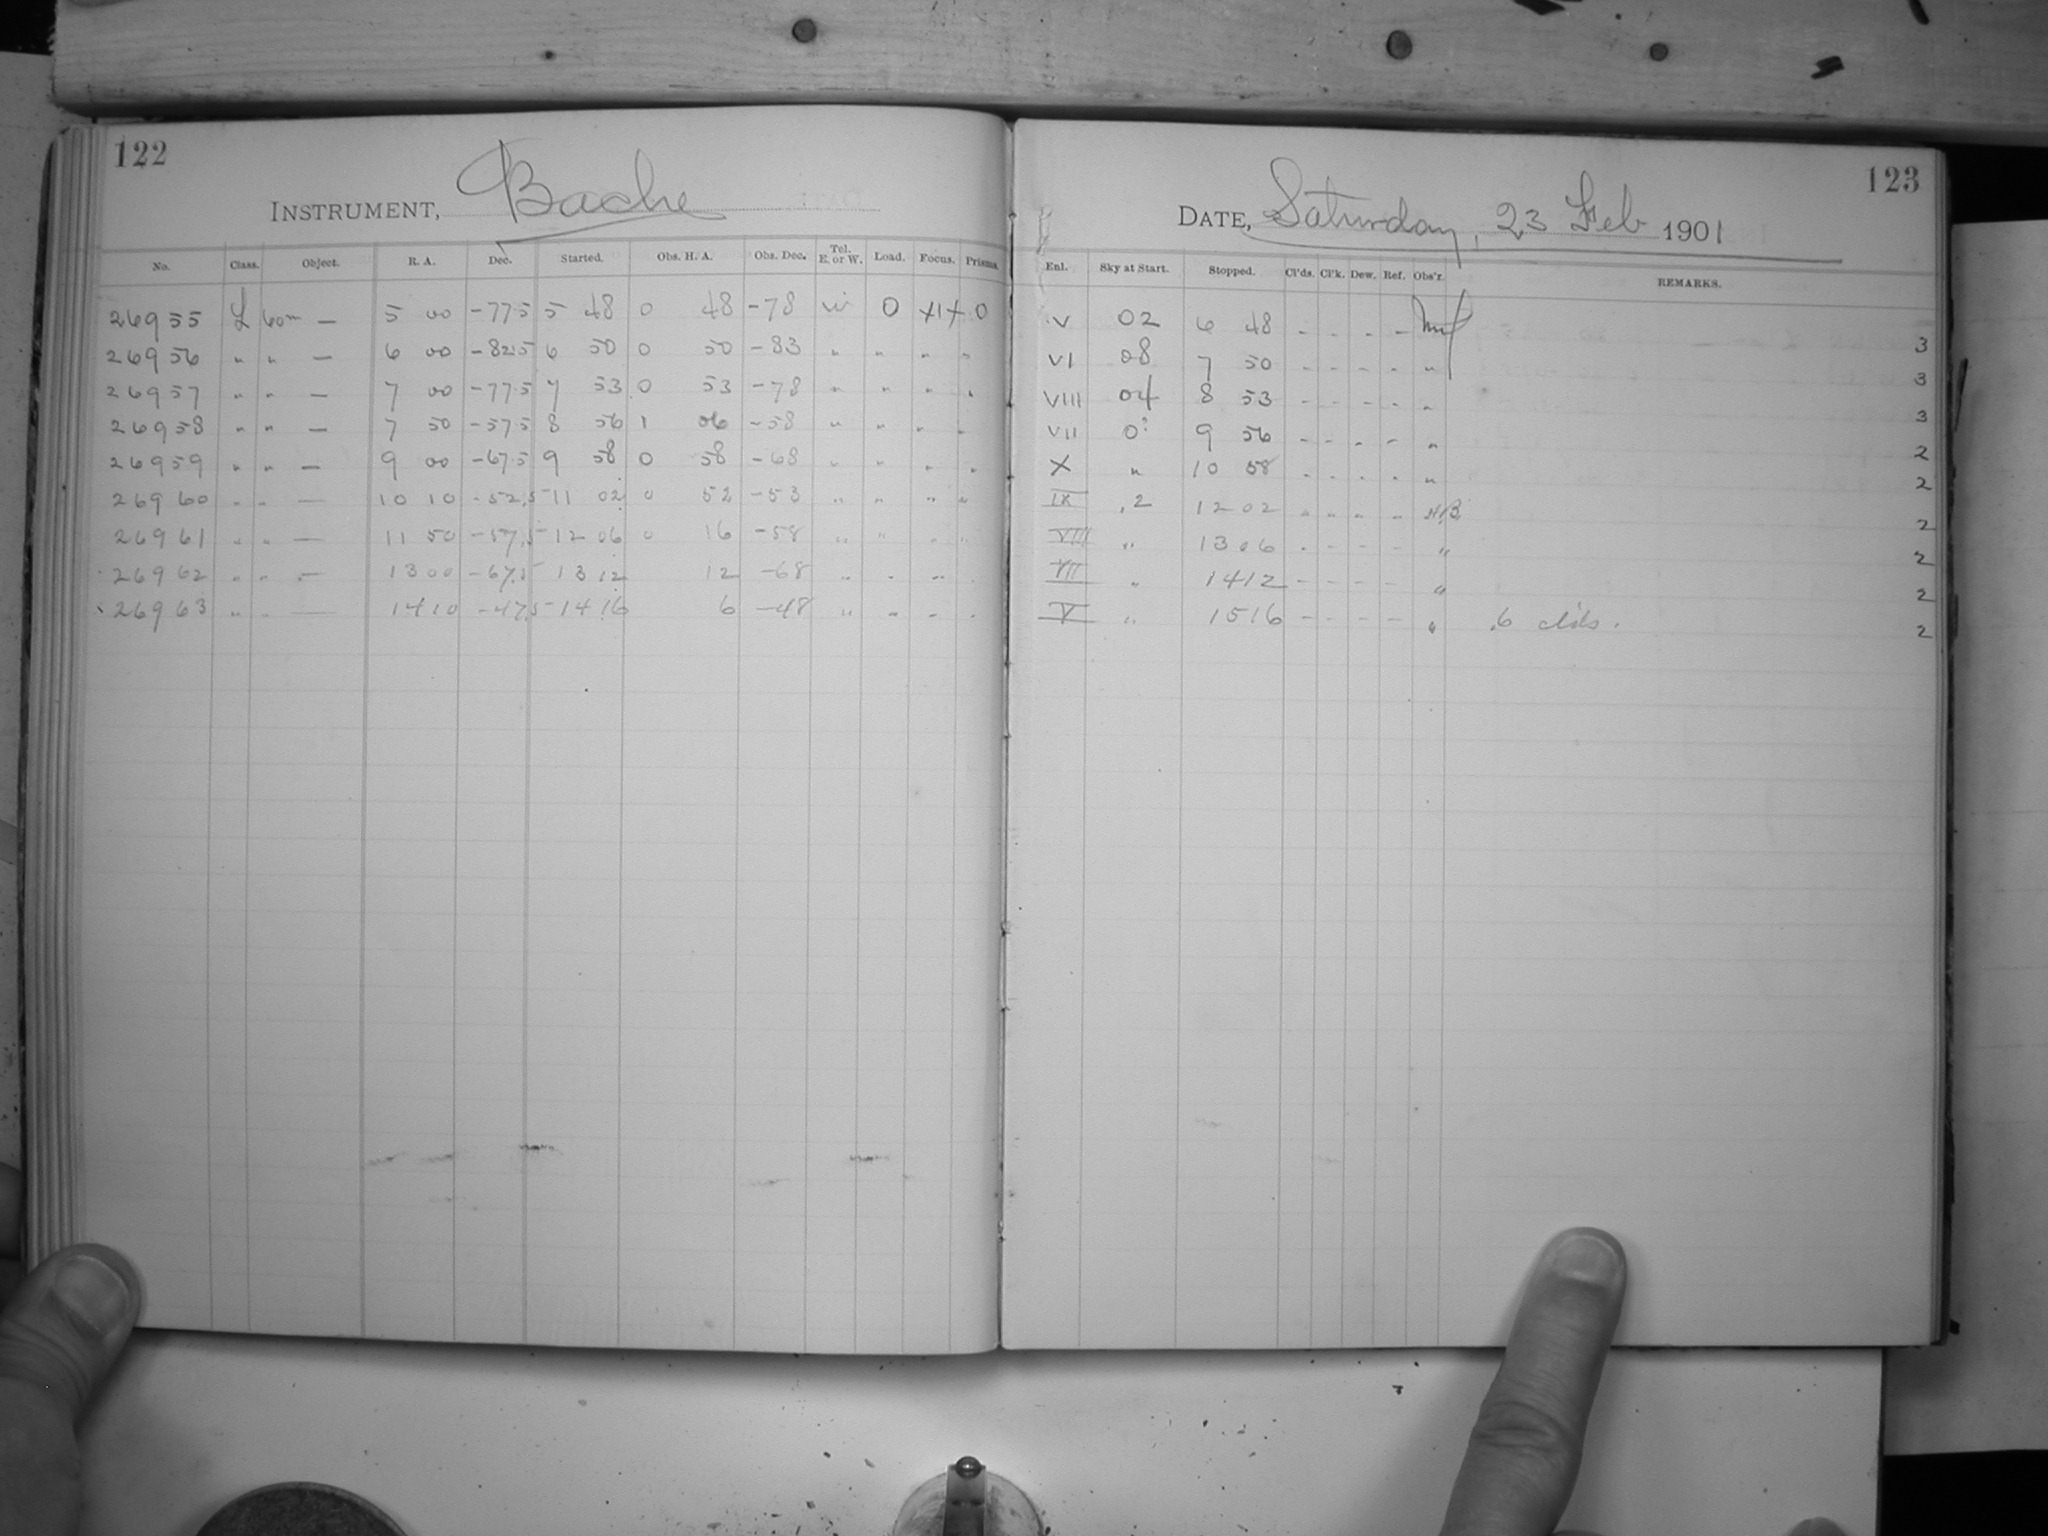 122
INSTRUMENT, Bache
No. Class. Object. R. A. Dec. Started. Obs. H. A. Obs. Dec. Tel. E. or W. Load. Focus. Prisms.
26955 L 60m — 5 00 -77.5 5 48 0 48 -78 W 0 0
26956 " " — 6 00 -82.5 6 50 0 50 -83 " " " "
26957 " " — 7 00 -77.5 7 53 0 53 -78 " " " "
26958 " " — 7 50 -57.5 8 56 1 06 -58 " " " "
26959 " " — 9 00 -67.5 9 58 0 58 -68 " " " "
26960 " " — 10 10 -52.5 11 02 0 52 -53 " " " "
26961 " " — 11 50 -57.5 12 06 0 16 -58 " " " "
26962 " " — 13 00 -67.5 13 12 12 -68 " " " "
26963 " " — 14 10 -47.5 14 16 6 -48 " " " "
123
DATE, Saturday, 23 Feb 1901
Enl. Sky at Start. Stopped. Cl'ds. Cl'k. Dew. Ref. Obs'r. REMARKS.
V 02 6 48 - - - - 3
VI 08 7 50 - - - - " 3
VIII 04 8 53 - - - - " 3
VII 0? 9 56 - - - - " 2
X " 10 58 - - - - " 2
IX .2 12 02 " " " - 2
VIII " 13 06 - - - - " 2
VII " 14 12 - - - - " 2
V " 15 16 - - - - " .6 clds. 2